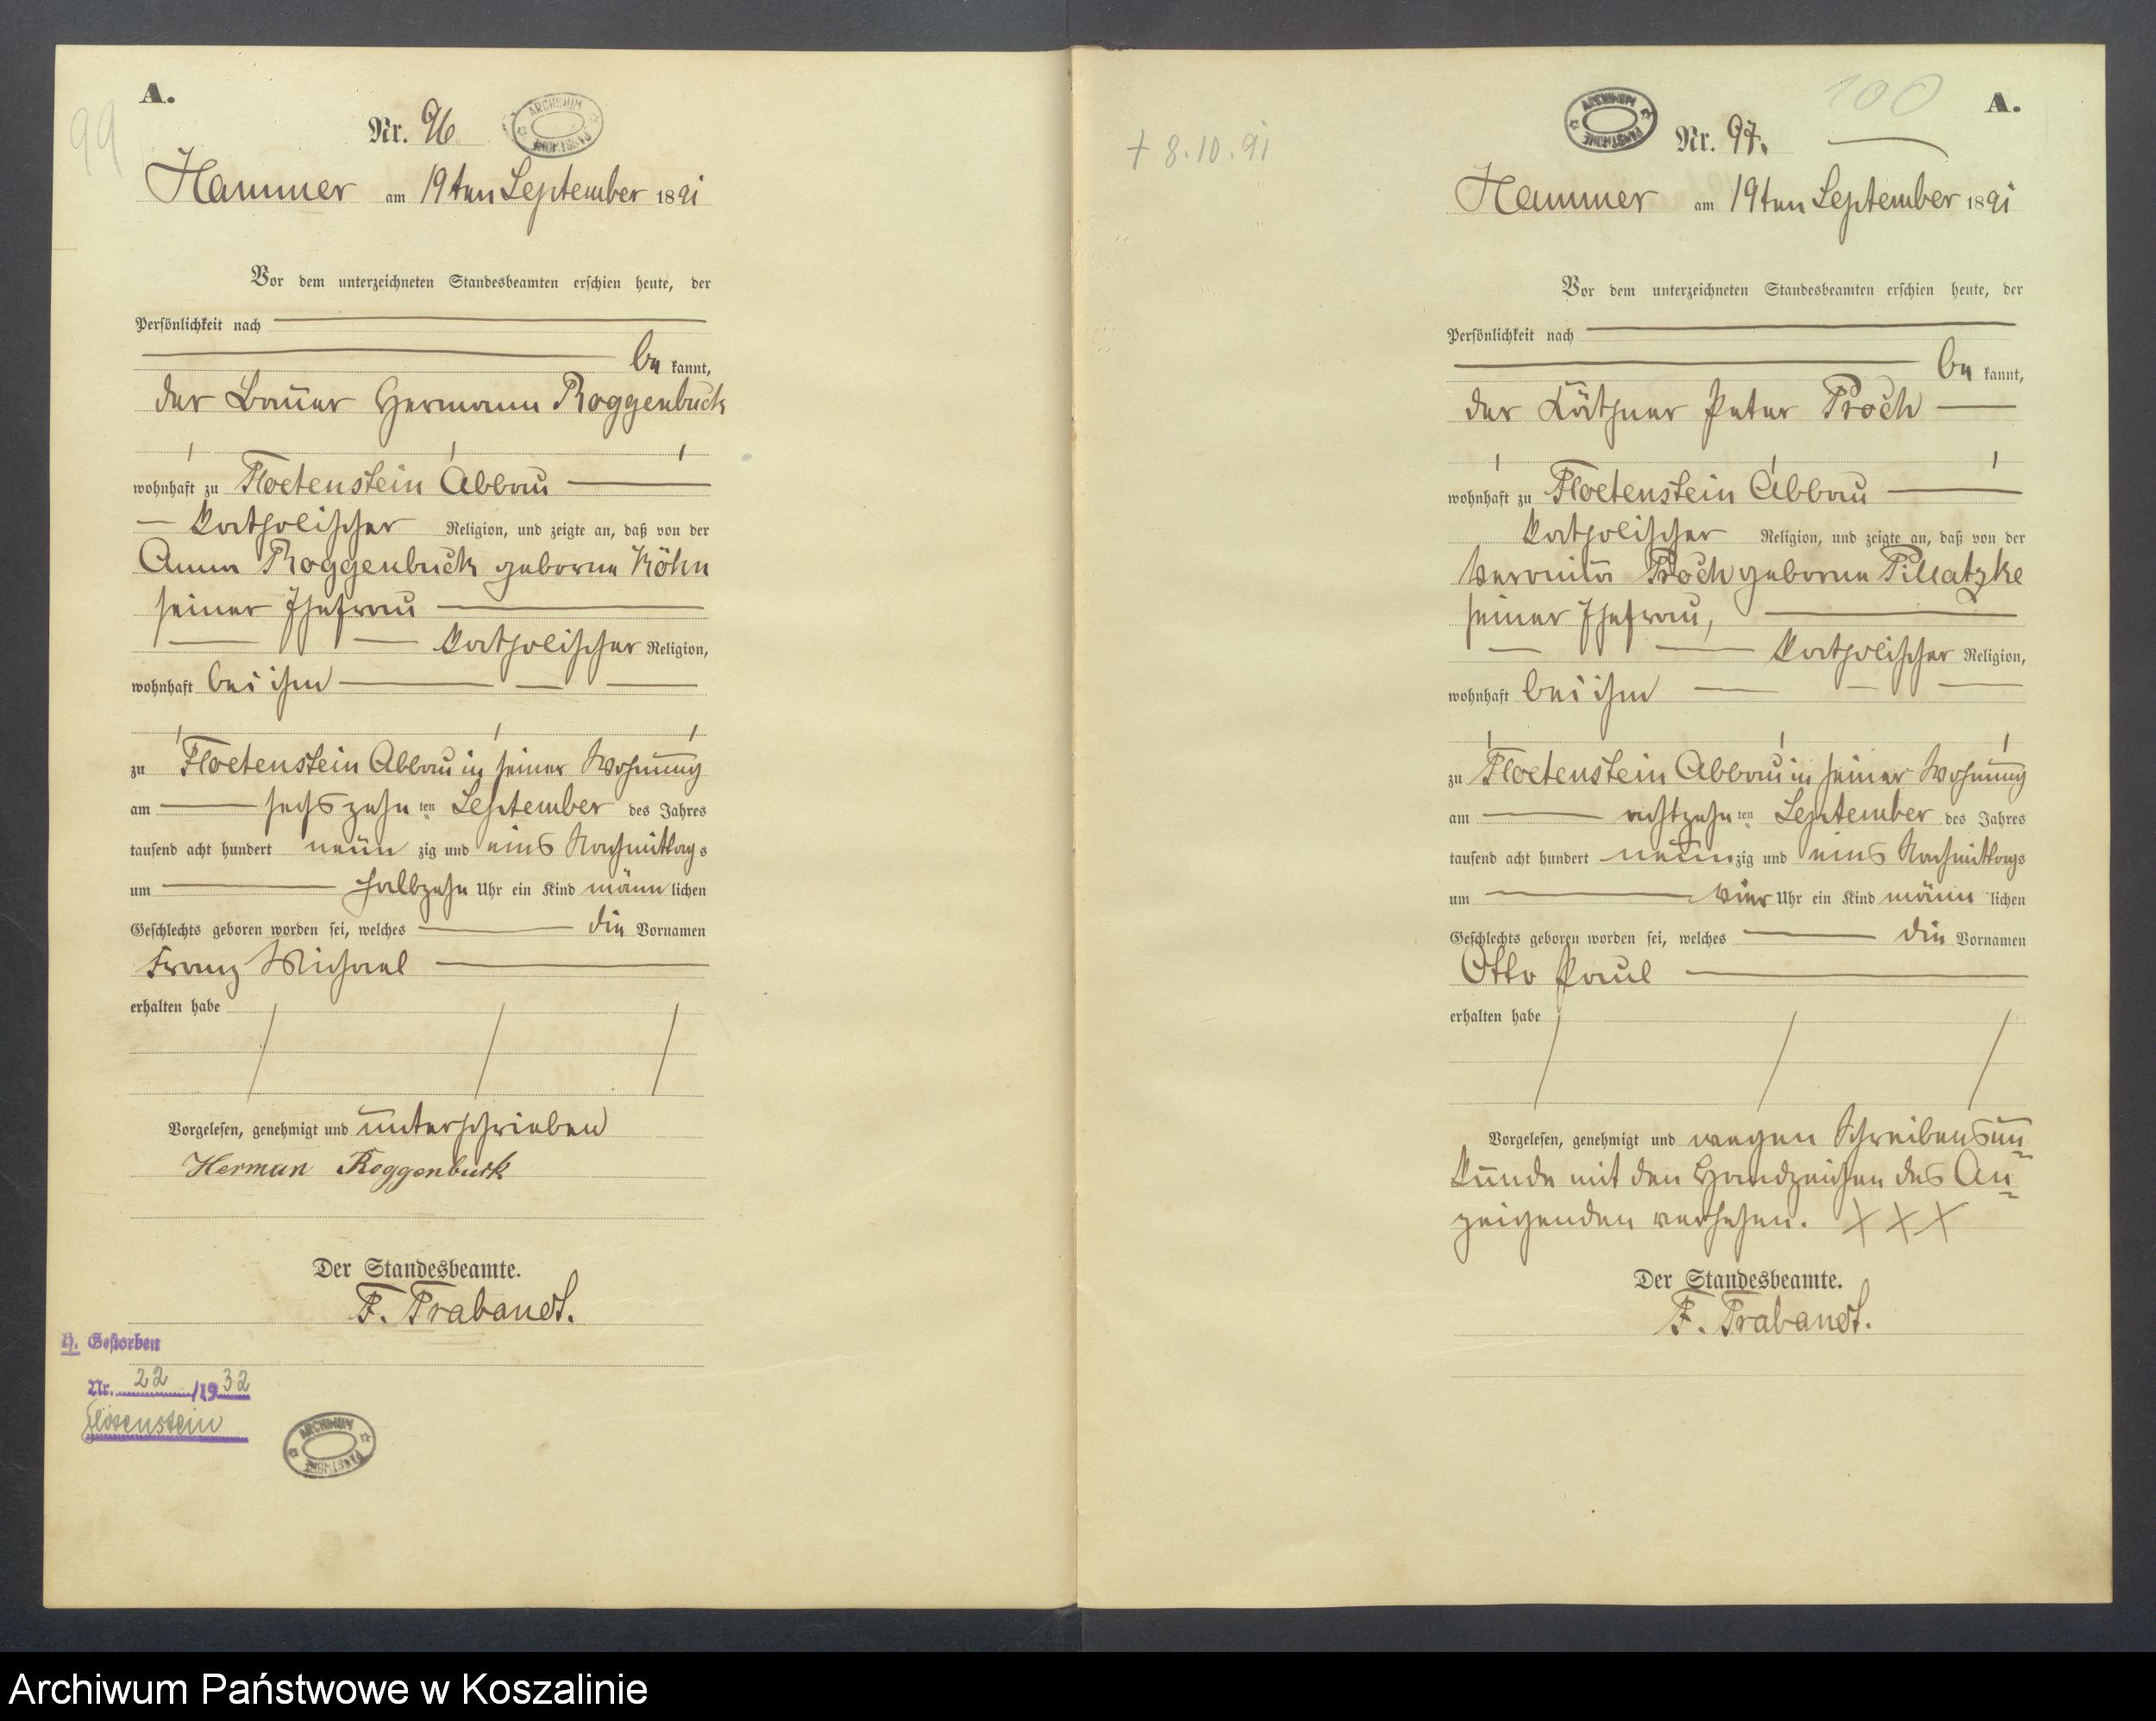 99
A.
Nr. 96.
ARCHIWUM PAŃSTWOWE
Hammer am 19ten September 1891
Vor dem unterzeichneten Standesbeamten erschien heute, der
Persönlichkeit nach
bekannt,
der Bauer Hermann Roggenbuck
wohnhaft zu Floetenstein Abbau
katholischer Religion, und zeigte an, daß von der
Anna Roggenbuck geborne Köhn
seiner Ehefrau
katholischer Religion,
wohnhaft bei ihm
zu Floetenstein Abbau in seiner Wohnung
am sechszehnten September des Jahres
tausend acht hundert neunzig und eins Nachmittags
um halbzehn Uhr ein Kind männlichen
Geschlechts geboren worden sei, welches die Vornamen
Franz Michael
erhalten habe
Vorgelesen, genehmigt und unterschrieben
Herman Roggenbuck
Der Standesbeamte.
F. Trabandt.
H. Gestorben
Nr. 22 /1932
Flötenstein
ARCHIWUM PAŃSTWOWE
100
A.
ARCHIWUM PAŃSTWOWE
Nr. 97.
+ 8.10.91
Hammer am 19ten September 1891
Vor dem unterzeichneten Standesbeamten erschien heute, der
Persönlichkeit nach
bekannt,
der Käthner Peter Proch
wohnhaft zu Floetenstein Abbau
katholischer Religion, und zeigte an, daß von der
Veronika Proch geborne Pillatzke
seiner Ehefrau,
katholischer Religion,
wohnhaft bei ihm
zu Floetenstein Abbau in seiner Wohnung
am achtzehnten September des Jahres
tausend acht hundert neunzig und eins Nachmittags
um vier Uhr ein Kind männlichen
Geschlechts geboren worden sei, welches die Vornamen
Otto Paul
erhalten habe
Vorgelesen, genehmigt und wegen Schreibensun=
kunde mit den Handzeichen des An=
zeigenden versehen. XXX
Der Standesbeamte.
F. Trabandt.
Archiwum Państwowe w Koszalinie